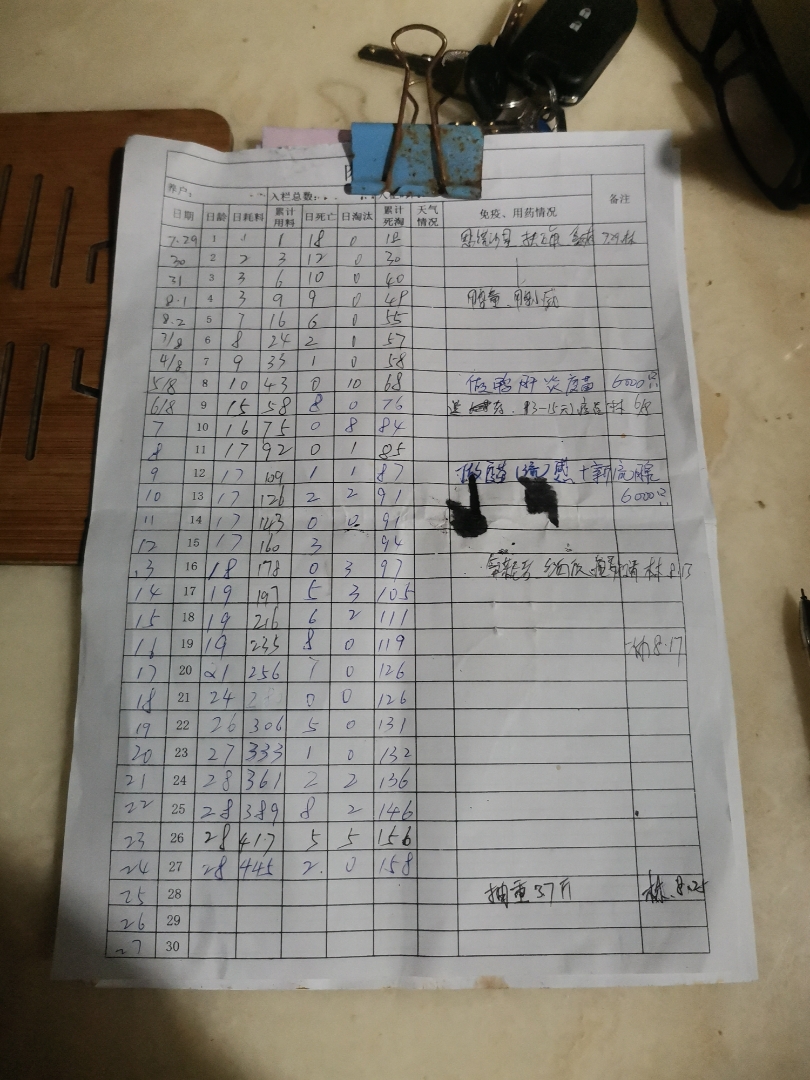 养户: 入栏总数: 备注
日期 日龄 日耗料 累计用料 日死亡 日淘汰 累计死淘 天气情况 免疫、用药情况
7.29 1 1 1 18 0 18 7.29 林
30 2 2 3 12 0 30
31 3 3 6 10 0 40
8.1 4 3 9 9 0 49
8.2 5 7 16 6 0 55
6 8 24 2 57
4/8 7 9 33 1 0 58
5/8 8 10 43 0 10 68 做鸭肝炎疫苗 6000只
6/8 9 15 58 8 0 76 6/8
7 10 16 75 0 8 84
8 11 17 92 0 1 85
9 12 17 109 1 1 87
10 13 17 126 2 2 91 6000只
11 14 17 143 0 0 91
12 15 17 160 3 94
13 16 18 178 0 3 97 林 8.13
14 17 19 197 5 3 105
15 18 19 216 6 2 111
16 19 19 235 8 0 119 8.17
17 20 21 256 7 0 126
18 21 24 0 0 126
19 22 26 306 5 0 131
20 23 27 333 1 0 132
21 24 28 361 2 2 136
22 25 28 389 8 2 146
23 26 28 417 5 5 156
24 27 28 445 2 0 158
25 28 抽重37斤 林.8.25
26 29
27 30